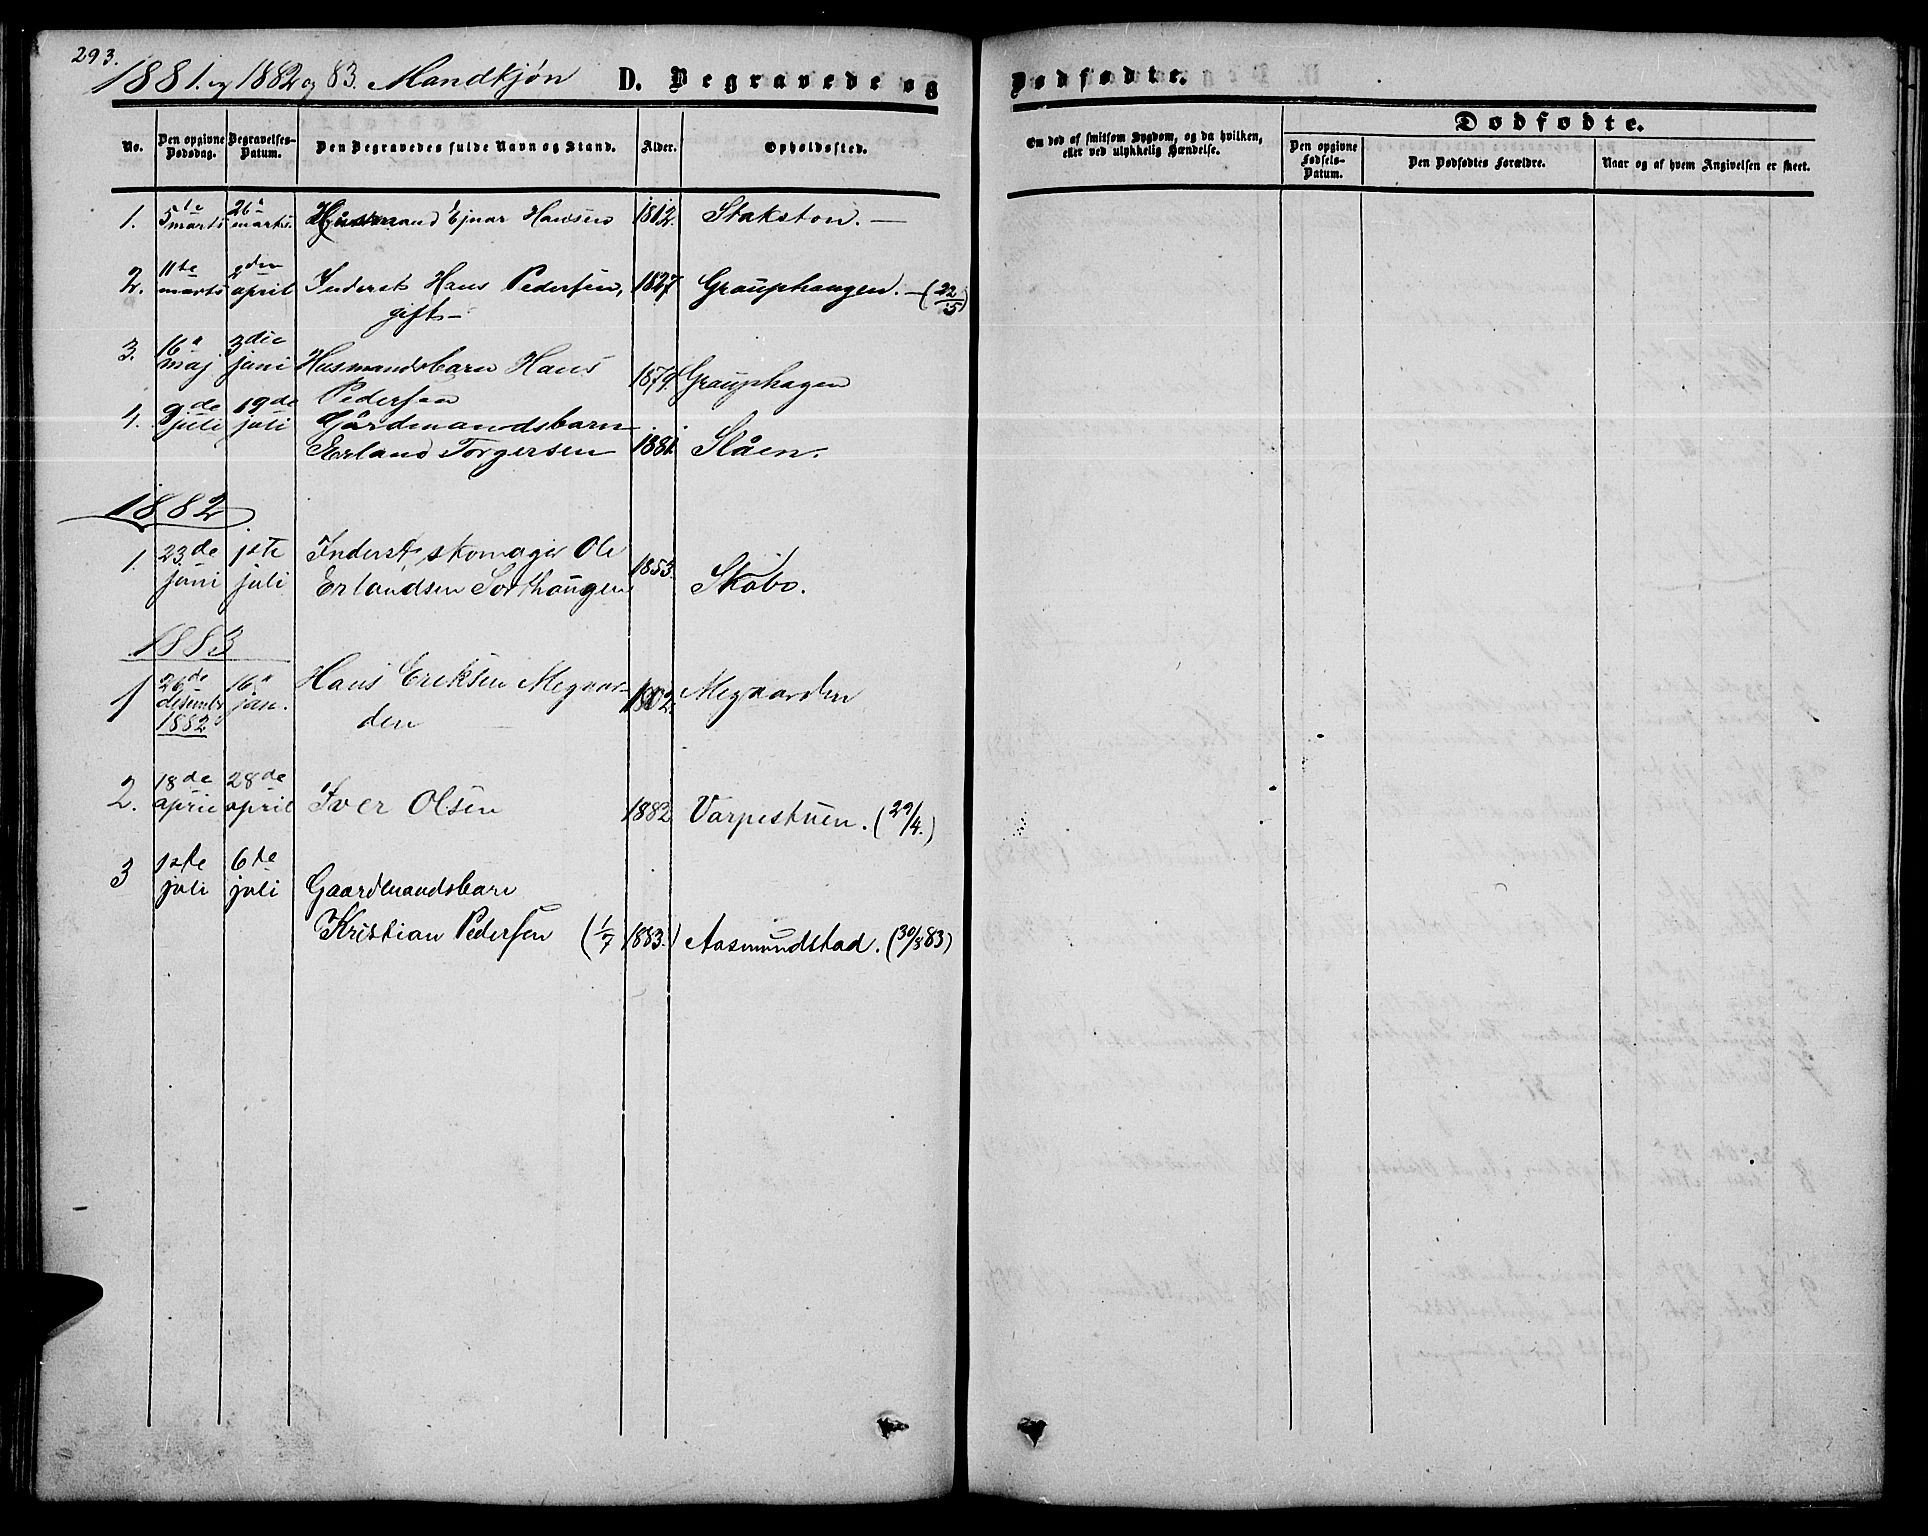 293.
1881. og 1882 og 83. Mandkjøn D. Begravede og Dødfødte.
No. Den opgivne Dødsdag. Begravelses-Datum. Den Begravedes fulde Navn og Stand. Alder. Opholdssted.
Om død af smitsom Sygdom, og da hvilken, eller ved ulykkelig Hændelse.
Dødfødte.
Den opgivne Fødsels-Datum. Den Dødfødtes Forældre. Naar og af hvem Angivelsen er skeet.
1. 5te marts 26de marts. Husmand Ejnar Hansen 1812. Stakston. —
2. 11te marts 2den april Inderst Hans Pedersen, 1827 Grauphaugen. — (22/5)
gift —
3. 16de maj 3die juni Husmandsbarn Hans
Pedersen 1879. Grauphagen
4. 9de juli 19de juli Gårdmandsbarn
Erland Torgersen 1881. Slåen.
1882.
1. 23de juni 1ste juli Inderst, skomager Ole
Erlandsen Sorthaugen 1853. Skåbo.
1883
1 26de desembr 1882 16de jan. Hans Eriksen Megaar-
den 1802. Megaarden
2. 18de april 28de april Iver Olsen 1882 Varpestuen. (29/4.)
3 1ste juli 6te juli Gaardmandsbarn
Kristian Pedersen (1/7 1883.) Aasmundstad. (30/8 83)